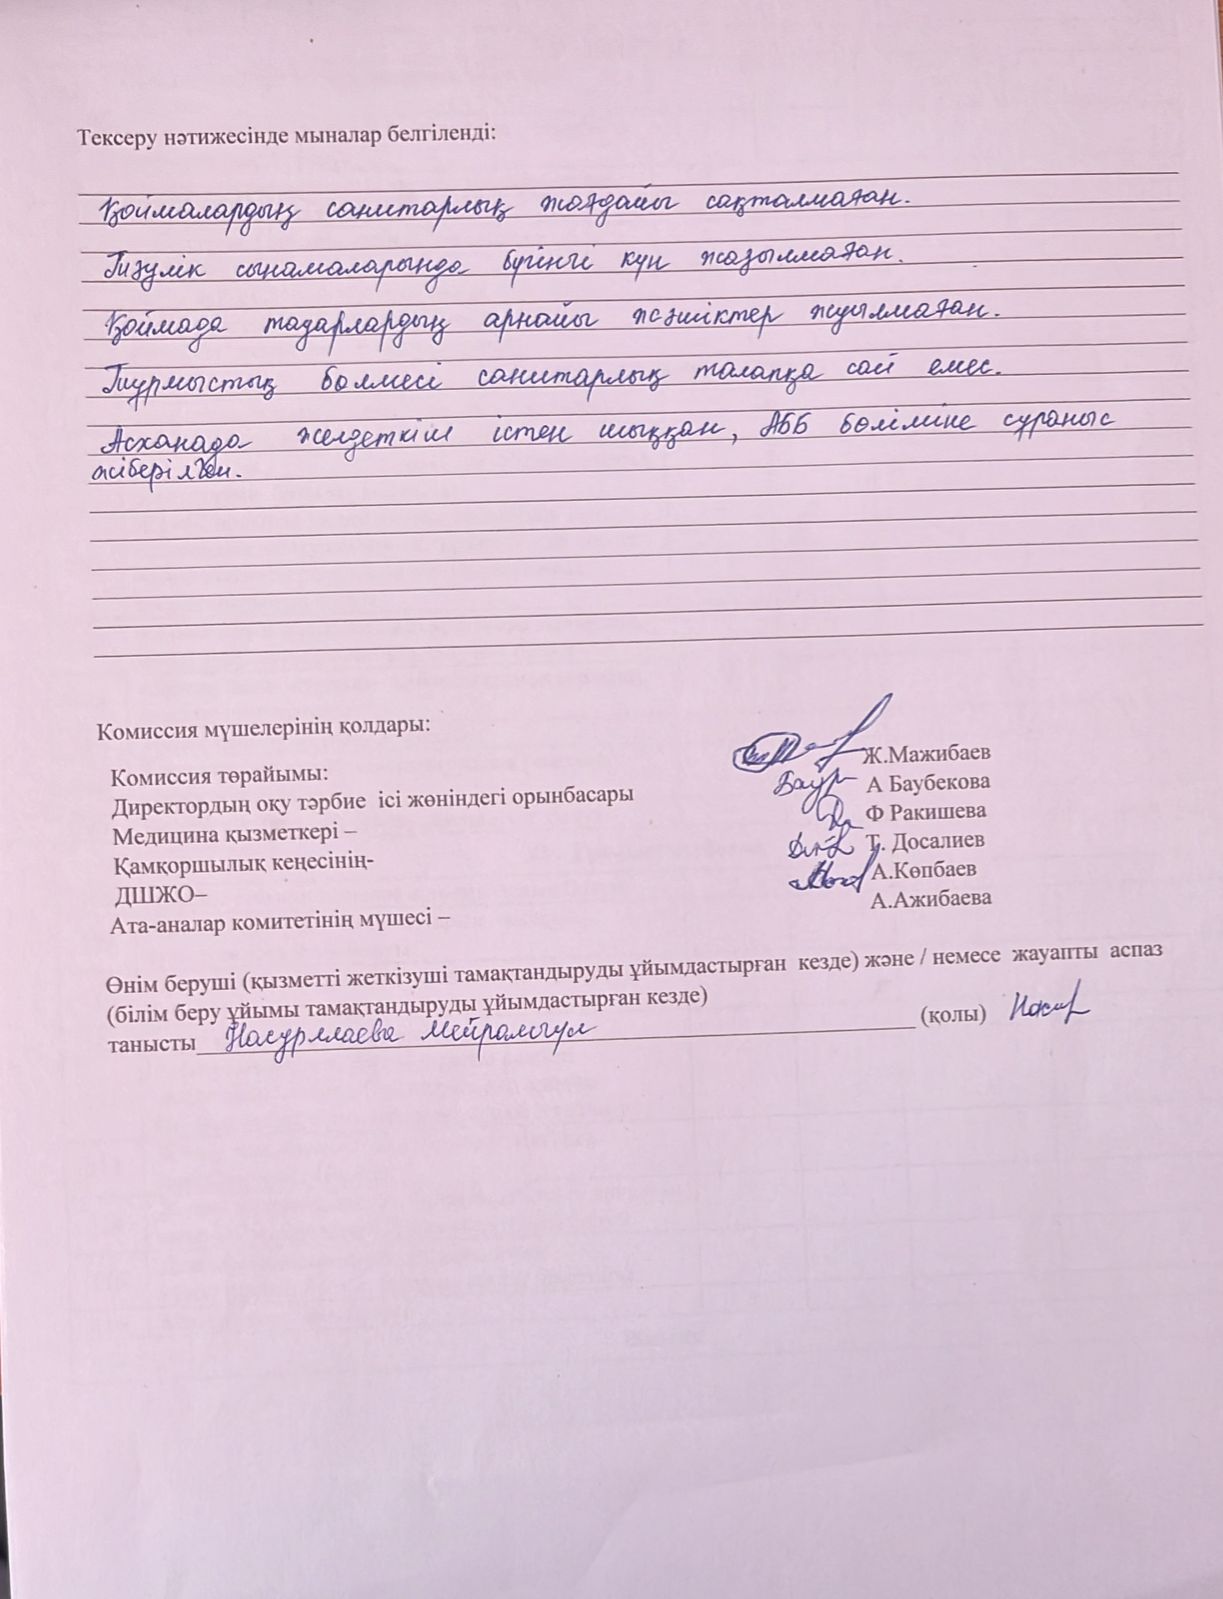 Тексеру нәтижесінде мыналар белгіленді:
Қоймалардың санитарлық жағдайы сақталмаған.
сынамаларында бүгінгі күн жазылмаған.
Қоймада тағарлардың арнайы жәшіктер жуылмаған.
Тұрмыстық бөлмесі санитарлық талапқа сай емес.
Асханада желдеткіш істен шыққан, АББ бөліміне сұраныс
жіберілген.
Комиссия мүшелерінің қолдары:
Комиссия төрайымы: Ж.Мажибаев
Директордың оқу тәрбие ісі жөніндегі орынбасары А Баубекова
Медицина қызметкері – Ф Ракишева
Қамқоршылық кеңесінің- Т. Досалиев
ДШЖО– А.Көпбаев
Ата-аналар комитетінің мүшесі – А.Ажибаева
Өнім беруші (қызметті жеткізуші тамақтандыруды ұйымдастырған кезде) және / немесе жауапты аспаз
(білім беру ұйымы тамақтандыруды ұйымдастырған кезде)
танысты Насурллаева Мейрамгул (қолы)